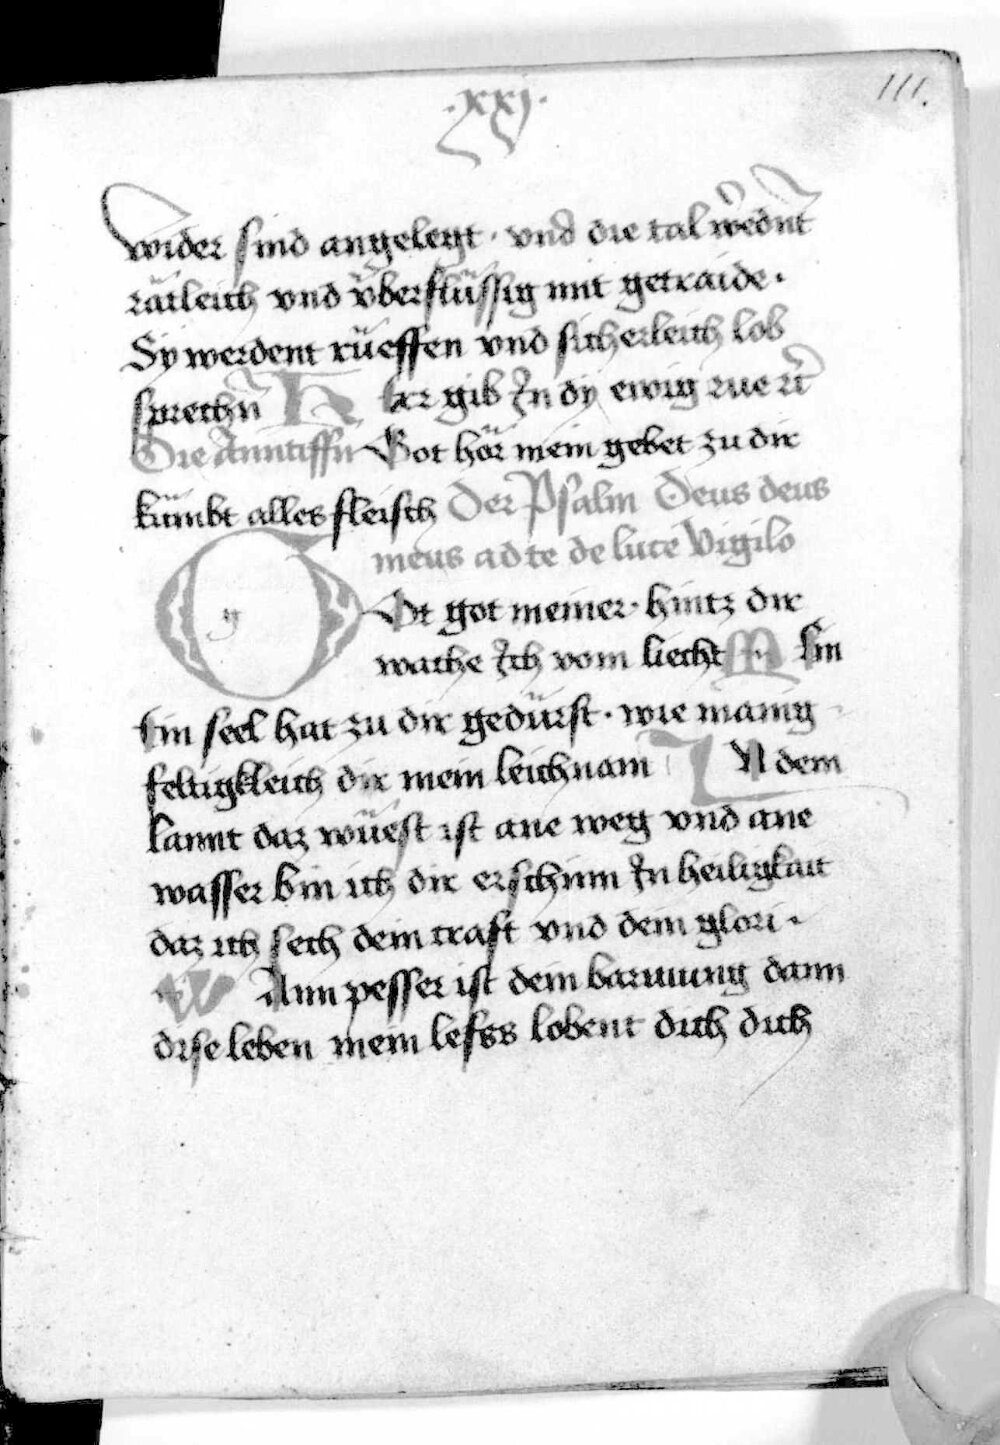 ·xxj·
111.
wider sind angelegt · vnd die tal werdnt
rätleich vnd v̈berflüssig mit getraide ·
Sy werdent rüeffen vnd sicherleich lob
sprechn̄ Herr gib In dy ewig rue rc̄
Die Anntiffn̄ Got hör mein gebet zu dir
kümbt alles fleisch Der Psalm Deus deus
meus ad te de luce vigilo
Got got meiner · hintz dir
wache Ich vom liecht Min
ein seel hat zu dir gedürst · wie mänig
feltigkleich dir mein leichnam IN dem
lannt daz wüest ist ane weg vnd ane
wasser bin ich dir erschinn In heiligkait
daz ich sech dein craft vnd dein glori ·
WAnn pesser ist dein barmung dann
dise leben mein lefss lobent dich dich